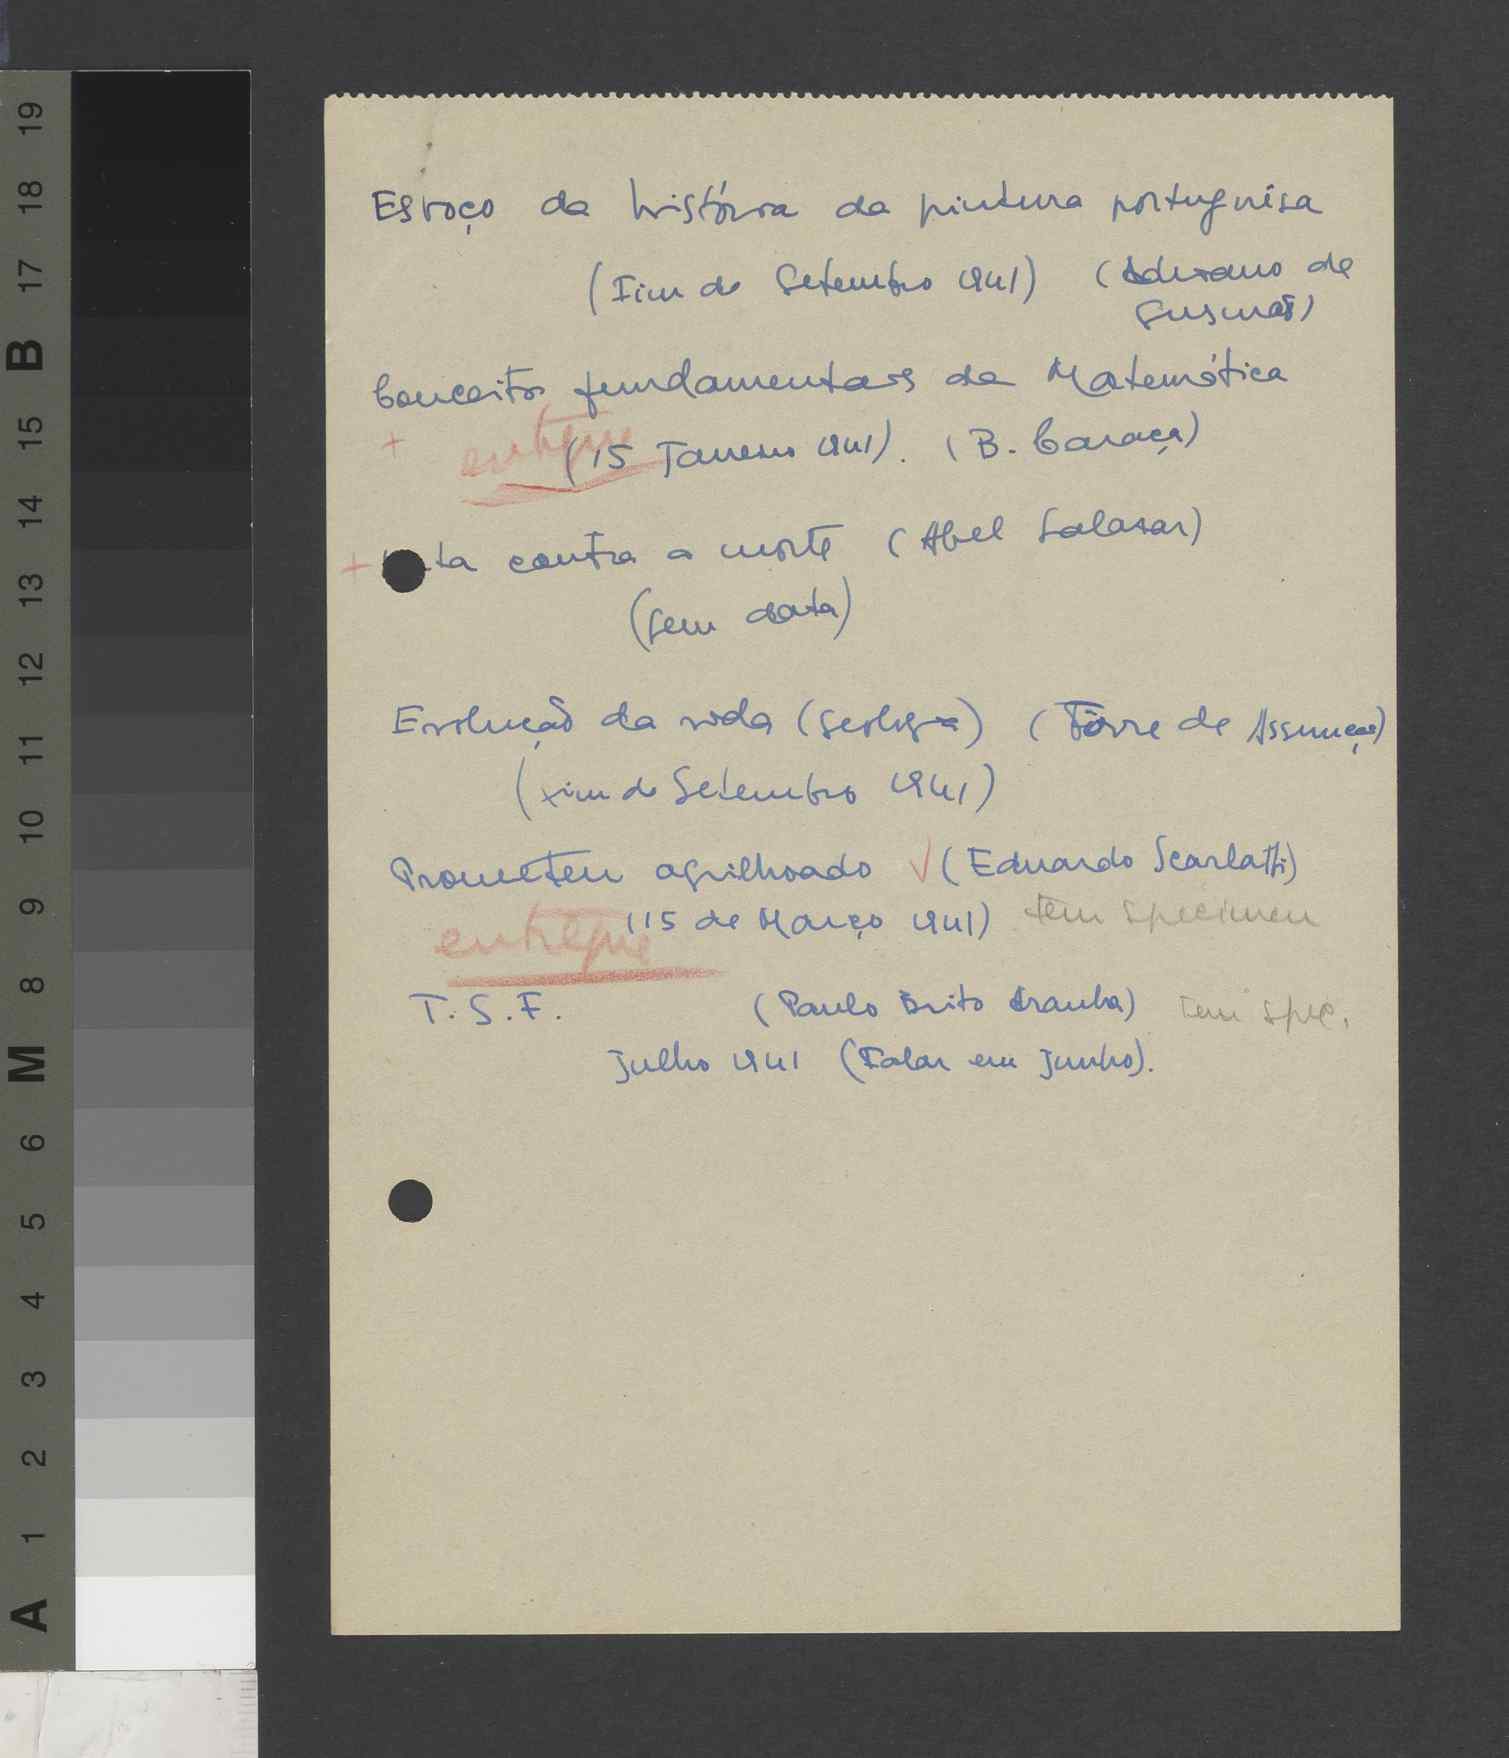 Esboço da história da pintura portuguêsa
(Fim de Setembro 1941) (Adriano de
Gusmão)
Conceitos fundamentais da Matemática
+ entregue (15 Janeiro 1941). (B. Caraça)
+ ta contra a morte (Abel Salazar)
(sem data)
Evolução da vida (geologia) (Tôrre de Assunção)
(fim de Setembro 1941)
Prometeu agrilhoado √ (Eduardo Scarlatti)
(15 de Março 1941) tem specimen
entregue
T. S. F. (Paulo Brito Aranha) tem spec.
Julho 1941 (Falar em Junho).
19
18
17
B
15
14
13
12
11
10
9
8
M
6
5
4
3
2
1
A